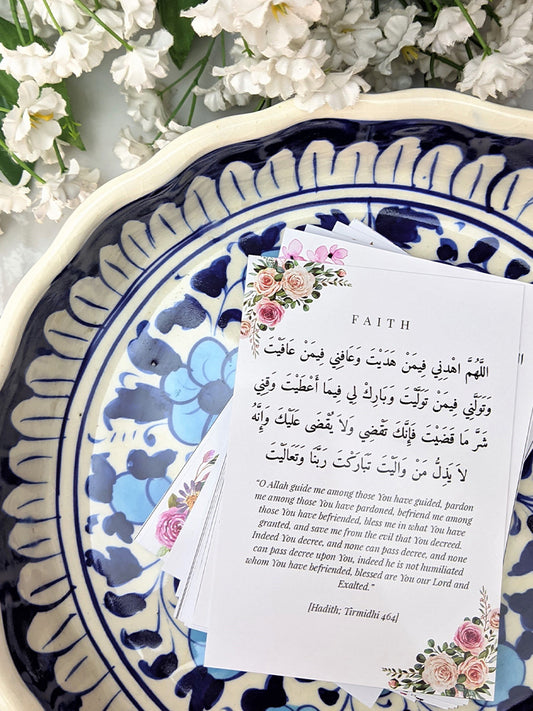 FAITH
اللَّهُمَّ اهْدِنِي فِيمَنْ هَدَيْتَ وَعَافِنِي فِيمَنْ عَافَيْتَ
وَتَوَلَّنِي فِيمَنْ تَوَلَّيْتَ وَبَارِكْ لِي فِيمَا أَعْطَيْتَ وَقِنِي
شَرَّ مَا قَضَيْتَ فَإِنَّكَ تَقْضِي وَلاَ يُقْضَى عَلَيْكَ وَإِنَّهُ
لاَ يَذِلُّ مَنْ وَالَيْتَ تَبَارَكْتَ رَبَّنَا وَتَعَالَيْتَ
"O Allah guide me among those You have guided, pardon
me among those You have pardoned, befriend me among
those You have befriended, bless me in what You have
granted, and save me from the evil that You decreed.
Indeed You decree, and none can pass decree, and none
can pass decree upon You, indeed he is not humiliated
whom You have befriended, blessed are You our Lord and
Exalted."
[Hadith; Tirmidhi 464]